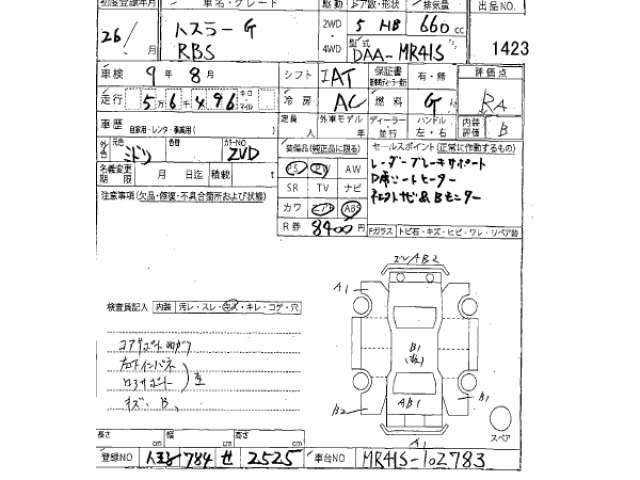 初度登録年月 車名・グレード 駆動 ドア数・形状 排気量 出品NO.
26/ 月 ハスラー G 2WD・4WD 5 HB 660 cc
RBS 型式 DAA-MR41S 1423
車検 9年 8月 シフト IAT 保証書 有・無 評価点
走行 5万6千496 キロ マイル 冷房 AC 燃料 G RA
車歴 自家用・レンタ・事業用( ) 定員 人 外車モデル 年 ディーラー 並行 ハンドル 左・右 内装評価 B
外色 元色 ミドリ 色替 カラーNO ZVD 装備品(純正品に限る) セールスポイント(正常に作動するもの)
名義変更期限 月 日迄 積載 t PS PW AW レーダーブレーキサポート
注意事項(欠品・修復・不具合箇所および状態) SR TV ナビ D席シートヒーター
カワ エアB ABS
R券 8400円 Fガラス トビ石・キズ・ヒビ・ワレ・リペア跡
スレAB2
A1
検査員記入 内装 汚レ・スレ・キズ・キレ・コゲ・穴
B1
コアサポート
キズ・B、
B2 AB1 B1
スペア
A1
長さ cm 幅 cm 高さ cm
登録NO 八王子 784 せ 2525 車台NO MR41S-102783